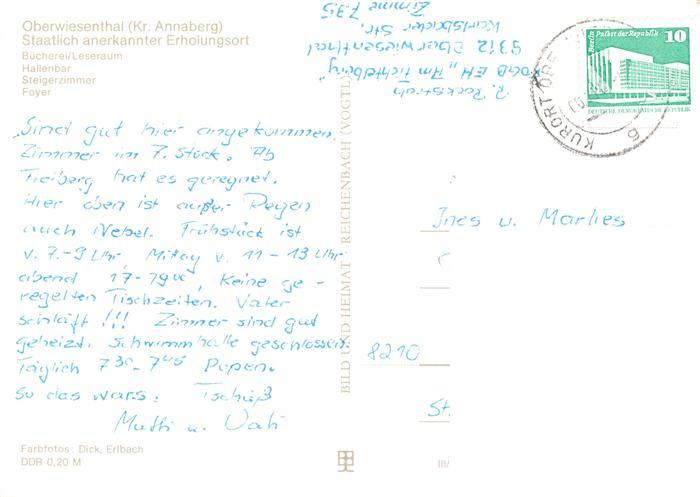 Oberwiesenthal (Kr. Annaberg)
Staatlich anerkannter Erholungsort
Bücherei/Leseraum
Hallenbar
Steigerzimmer
Foyer
Sind gut hier angekommen.
Zimmer im 7. Stock. Ab
Freiberg hat es geregnet.
Hier oben ist außer Regen
auch Nebel. Frühstück ist
v. 7.-9 Uhr, Mittag v. 11-13 Uhr
abend 17-19⁰⁰, Keine ge-
regelten Tischzeiten. Vater
schläft!!! Zimmer sind gut
geheizt. Schwimmhalle geschlossen.
Täglich 7³⁰-7⁴⁵ Popen.
So das wars. Tschüß
Mutti u. Vati
Farbfotos: Dick, Erlbach
DDR 0,20 M
BILD UND HEIMAT REICHENBACH (VOGTL
R. Rockstroh
FDGB EH „Am Fichtelberg"
9312 Oberwiesenthal
Karlsbader Str.
Zimme 735
KURORT OBE
6
Berlin Palast der Republik
10
DEUTSCHE DEMOKRATISCHE REPUBLIK
Ines u. Marlies
8210
St.
III/